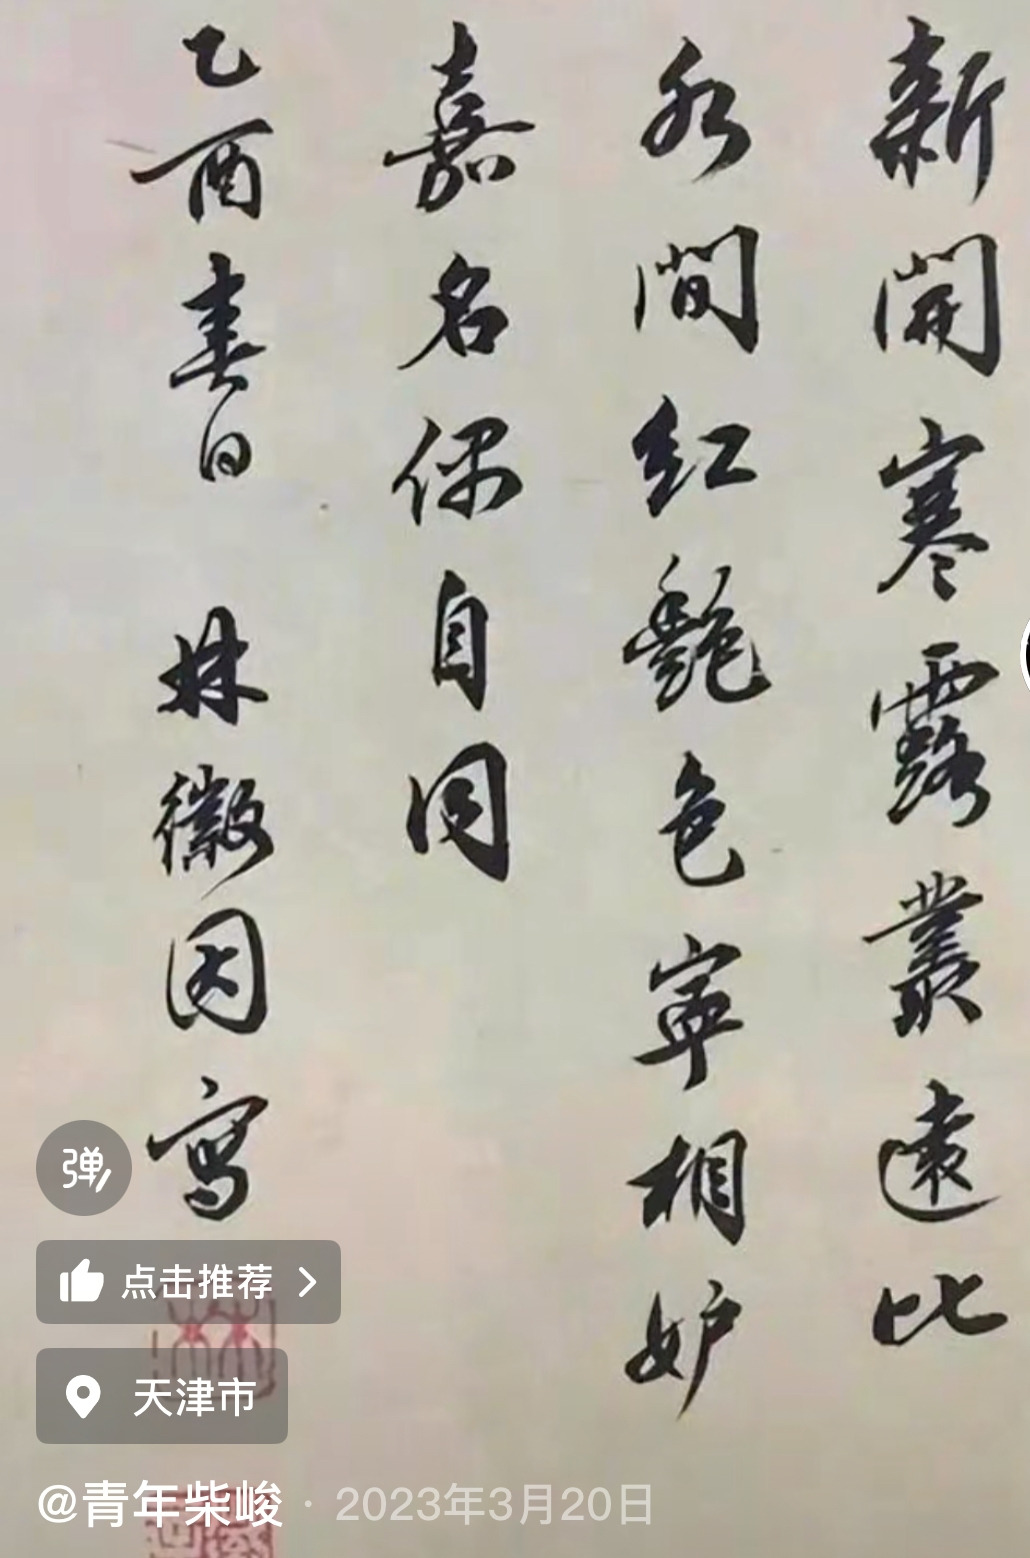 新開寒露叢遠比
水間紅艷色寧相妒
嘉名偶自同
乙酉春日 林徽因寫
弹
点击推荐
天津市
@青年柴峻 · 2023年3月20日